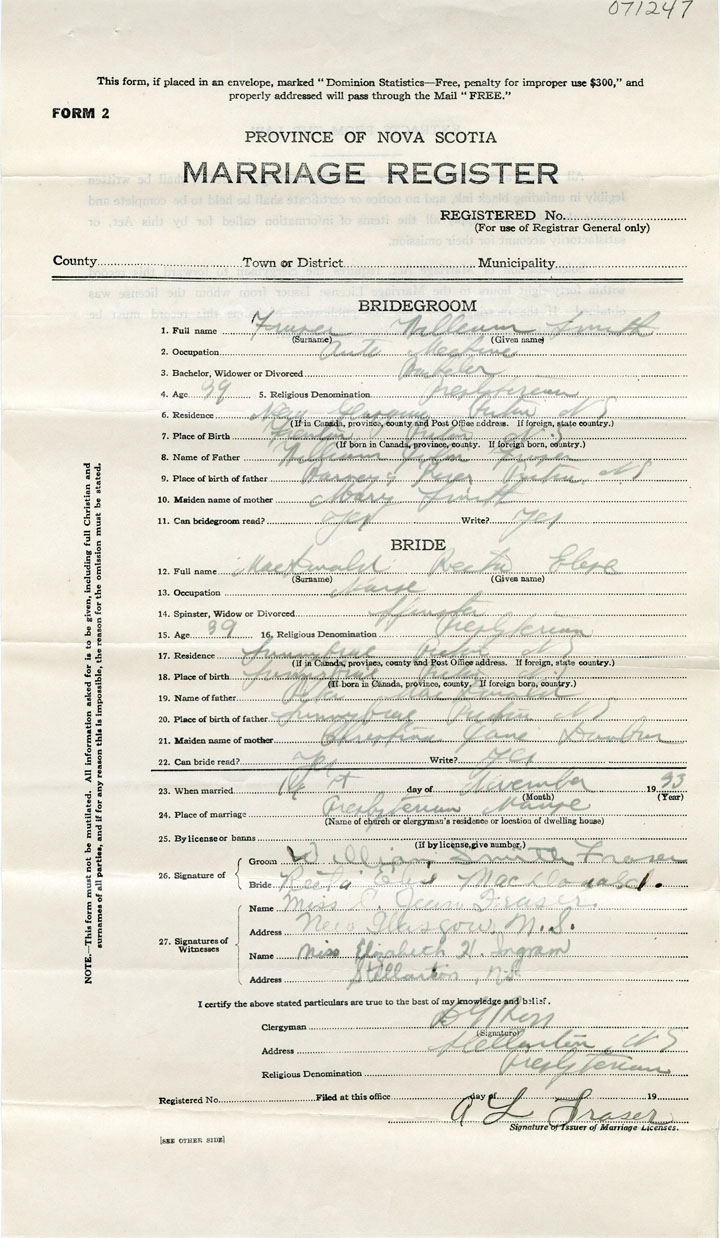 071247
This form, if placed in an envelope, marked "Dominion Statistics—Free, penalty for improper use $300," and
properly addressed will pass through the Mail "FREE."
FORM 2
PROVINCE OF NOVA SCOTIA
MARRIAGE REGISTER
REGISTERED No.
(For use of Registrar General only)
County Town or District Municipality
BRIDEGROOM
1. Full name Fraser William Smith
(Surname) (Given name)
2. Occupation Auto
3. Bachelor, Widower or Divorced Bachelor
4. Age 39 5. Religious Denomination Presbyterian
6. Residence New Glasgow Pictou N S
(If in Canada, province, county and Post Office address. If foreign, state country.)
7. Place of Birth
(If born in Canada, province, county. If foreign born, country.)
8. Name of Father William Fraser
9. Place of birth of father Barney's River Pictou N S
10. Maiden name of mother Mary Smith
11. Can bridegroom read? Yes Write? Yes
BRIDE
12. Full name MacDonald Reeta Elsie
(Surname) (Given name)
13. Occupation Nurse
14. Spinster, Widow or Divorced Spinster
15. Age 39 16. Religious Denomination Presbyterian
17. Residence Sunnybrae Pictou N S
(If in Canada, province, county and Post Office address. If foreign, state country.)
18. Place of birth Sunnybrae
(If born in Canada, province, county. If foreign born, country.)
19. Name of father MacDonald
20. Place of birth of father Sunnybrae Pictou N S
21. Maiden name of mother Christina Jane
22. Can bride read? Yes Write? Yes
23. When married day of November 1933
(Month) (Year)
24. Place of marriage Presbyterian Manse
(Name of church or clergyman's residence or location of dwelling house)
25. By license or banns
(If by license, give number.)
26. Signature of Groom William Smith Fraser
Bride Reeta Elsie MacDonald.
27. Signatures of Witnesses Name Miss C. Jean Fraser.
Address New Glasgow, N.S.
Name Miss Elizabeth H. Ingram
Address Stellarton, N.S.
I certify the above stated particulars are true to the best of my knowledge and belief.
Clergyman
(Signature)
Address Stellarton, N S
Religious Denomination Presbyterian
Registered No. Filed at this office day of 19
A L Fraser
Signature of Issuer of Marriage Licenses.
[SEE OTHER SIDE]
NOTE.—This form must not be mutilated. All information asked for is to be given, including full Christian and
surnames of all parties, and if for any reason this is impossible, the reason for the omission must be stated.